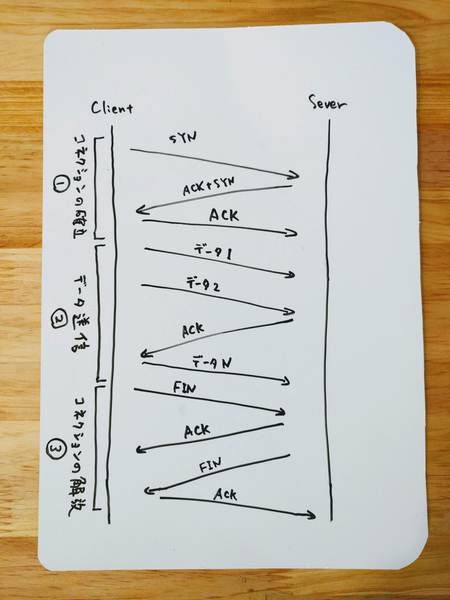 Client
Sever
SYN
ACK+SYN
ACK
データ1
データ2
ACK
データN
FIN
ACK
FIN
ACK
コネクションの確立
①
データ送信
②
コネクションの解放
③